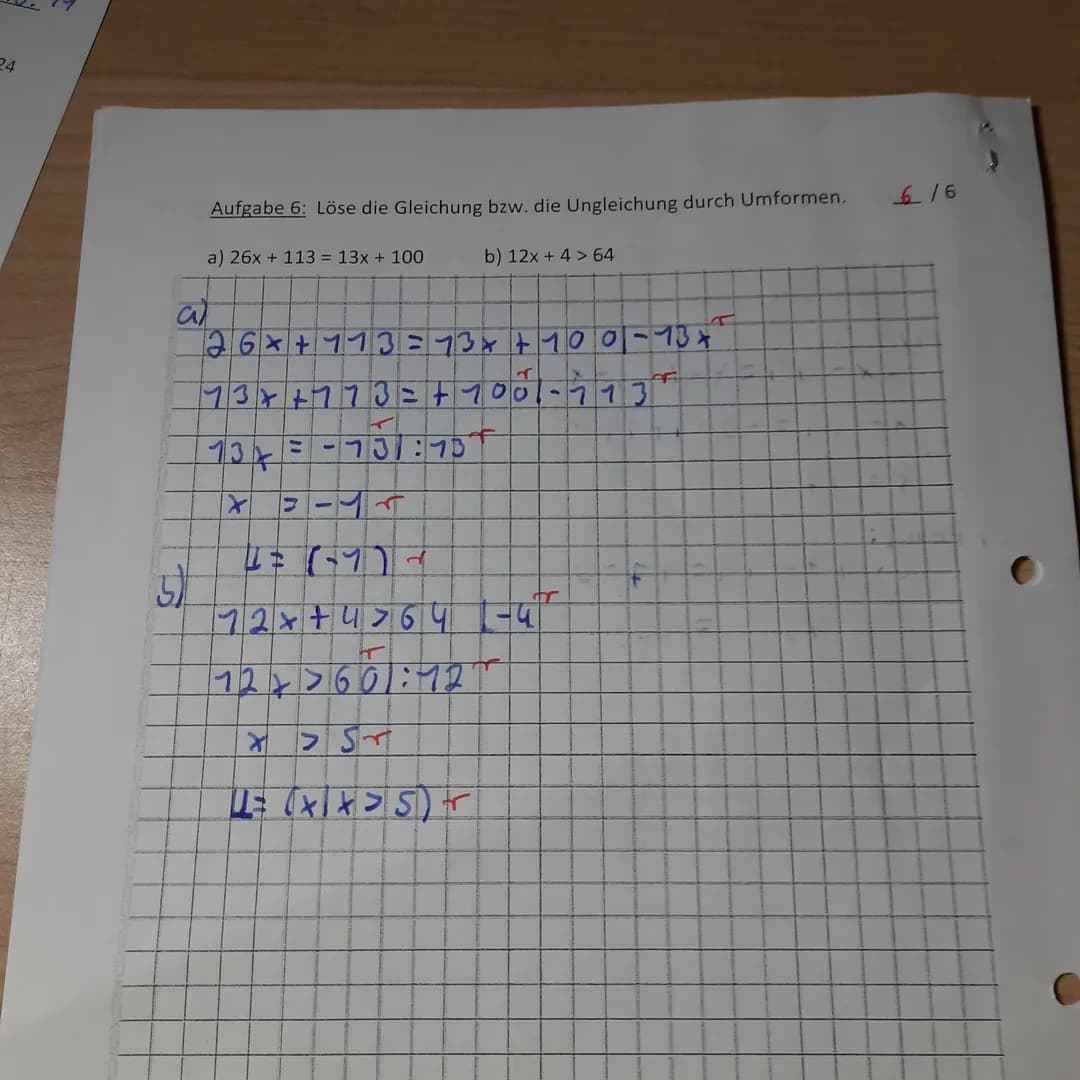 24
Aufgabe 6: Löse die Gleichung bzw. die Ungleichung durch Umformen. 6 / 6
a) 26x + 113 = 13x + 100 b) 12x + 4 > 64
a)
26x+113=13x+100|-13x r
13x+113=+100|-113 r r
13x=-13|:13 r r
x =-1 r
𝕃= {-1} r
b)
12x+4>64 |-4 r
12x>60|:12 r r
x > 5 r
𝕃= {x|x>5} r